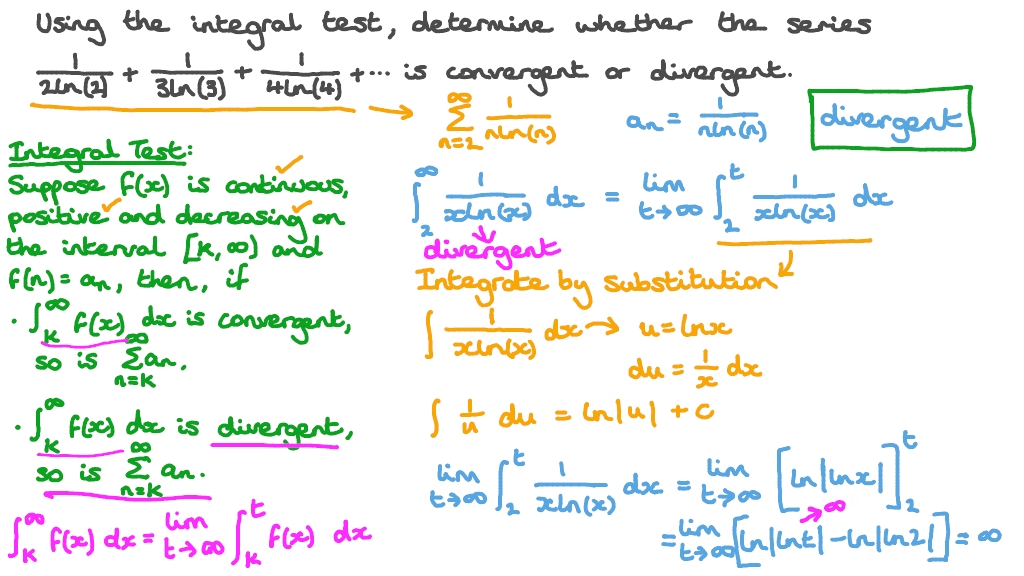 Using the integral test, determine whether the series
1/(2ln(2)) + 1/(3ln(3)) + 1/(4ln(4)) + ... is convergent or divergent.
∑_{n=2}^{∞} 1/(nln(n))
aₙ = 1/(nln(n))
divergent
Integral Test:
Suppose f(x) is continuous,
positive and decreasing on
the interval [k, ∞) and
f(n) = aₙ, then, if
· ∫_k^∞ f(x) dx is convergent,
so is ∑_{n=k}^{∞} aₙ.
· ∫_k^∞ f(x) dx is divergent,
so is ∑_{n=k}^{∞} aₙ.
∫_k^∞ f(x) dx = lim_{t→∞} ∫_k^t f(x) dx
∫_2^∞ 1/(xln(x)) dx = lim_{t→∞} ∫_2^t 1/(xln(x)) dx
divergent
Integrate by substitution
∫ 1/(xln(x)) dx → u = lnx
du = 1/x dx
∫ 1/u du = ln|u| + C
lim_{t→∞} ∫_2^t 1/(xln(x)) dx = lim_{t→∞} [ln|lnx|]_2^t
→∞
= lim_{t→∞} [ln|lnt| − ln|ln2|] = ∞